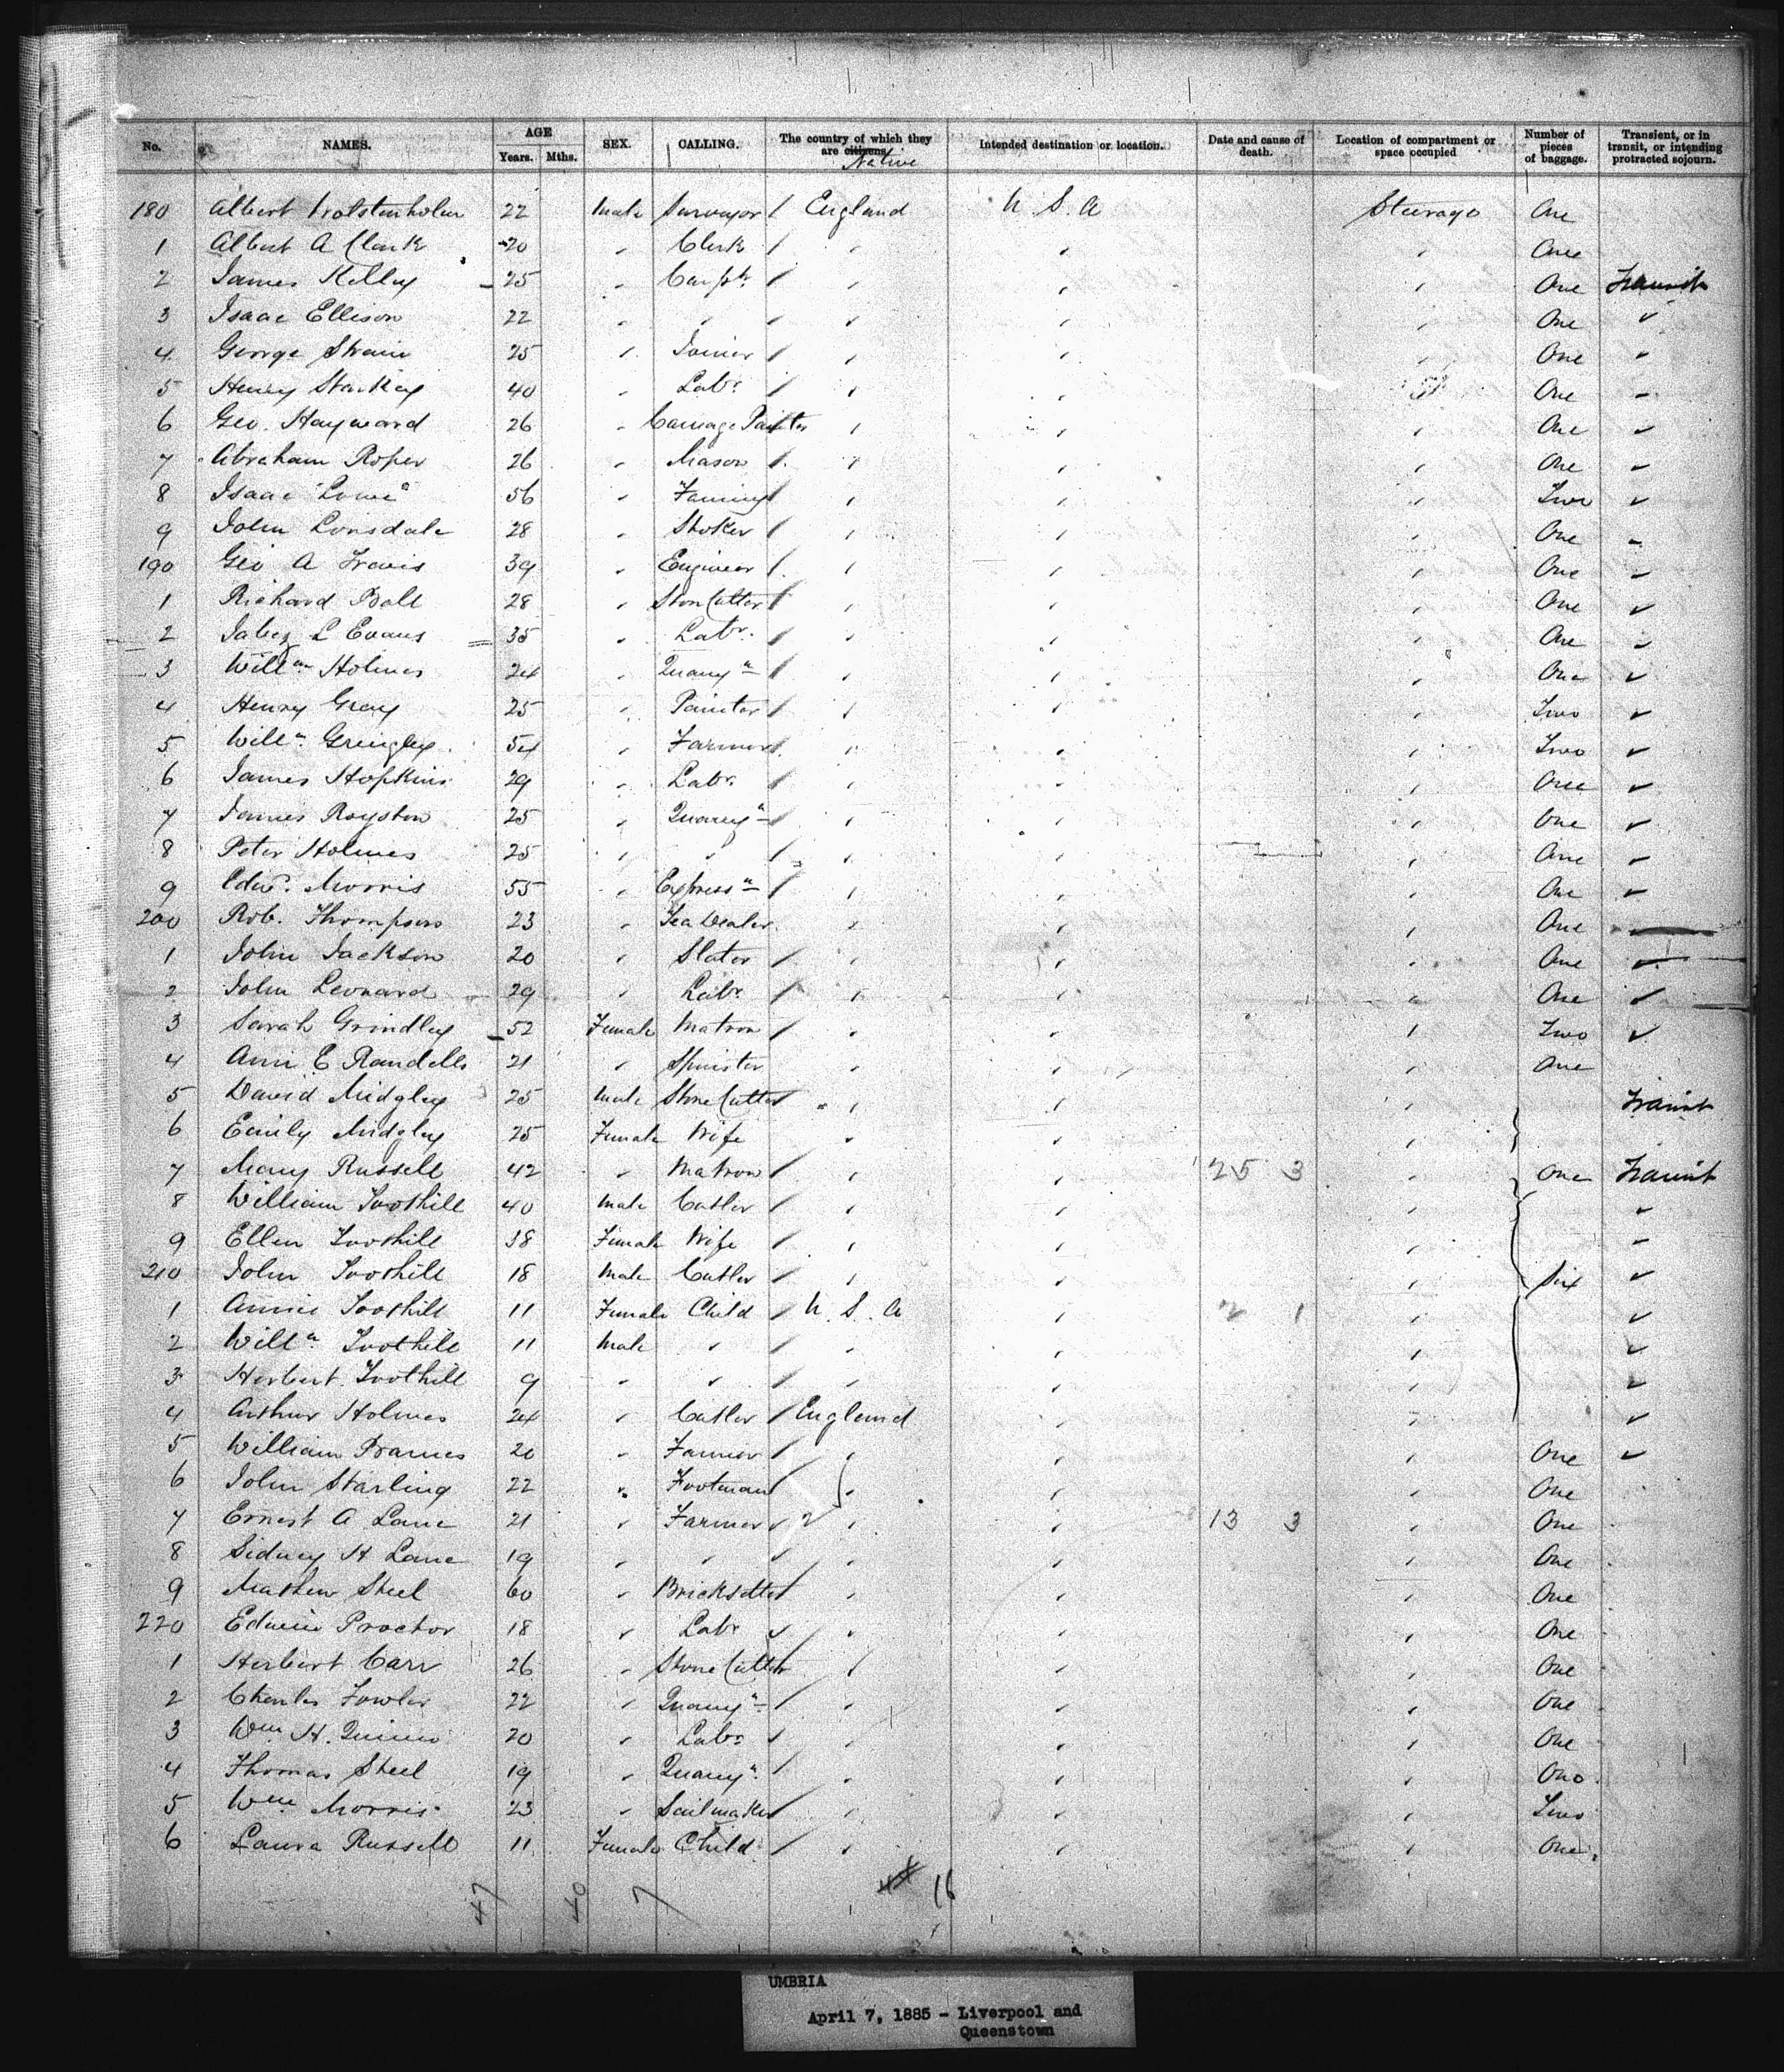 No. NAMES. AGE Years. Mths. SEX. CALLING. The country of which they are citizens. Native Intended destination or location. Date and cause of death. Location of compartment or space occupied Number of pieces of baggage. Transient, or in transit, or intending protracted sojourn.
180 Albert Wolstenholm 22 Male Surveyor / England U. S. A Steerage One
1 Albert A Clark 20 " Clerk / " " " One
2 James Kelley 25 " Carptr / " " " One Transit
3 Isaac Ellison 22 " " " " " " One "
4 George Strain 25 " Joiner / " " " One "
5 Henry Starkey 40 " Labr / " " " One "
6 Geo. Hayward 26 " Carriage Painter " " " One "
7 Abraham Roper 26 " Mason / " " " One "
8 Isaac 56 " Farming / " " " Two "
9 John Lonsdale 28 " Stoker / " " " One "
190 Geo A Travis 39 " Engineer / " " " One "
1 Richard Ball 28 " Ston Cutter / " " " One "
2 Jabez L Evans 35 " Labr. / " " " One "
3 Willm Holmes 24 " Quarryn / " " " One "
4 Henry Gray 25 " Painter / " " " Two "
5 Willm. Gringley 54 " Farmer / " " " Two "
6 James Hopkins 29 " Labr. / " " " One "
7 James Royston 25 " Quarryn / " " " One "
8 Peter Holmes 25 " " / " " " One "
9 Edwd. Morris 55 " Expressn / " " " One "
200 Rob. Thompson 23 " Tea Dealer " " " One
1 John Jackson 20 " Slater / " " " One "
2 John Leonard 29 " Labr / " " " One "
3 Sarah Grindley 52 Female Matron / " " " Two "
4 Ann E Randells 21 " Spinster " " " One
5 David Midgley 25 Male Stone Cutter / " " " Transit
6 Emily Midgley 25 Female Wife " " "
7 Mary Russell 42 " Matron / " " 25 3 " One Transit
8 William Toothill 40 Male Cutler / " " " "
9 Ellen Toothill 38 Female Wife / " " " "
210 John Toothill 18 Male Cutler / " " " Six "
1 Annie Toothill 11 Female Child / U. S. A " 2 1 " "
2 Willm Toothill 11 Male " / " " " "
3 Herbert Toothill 9 " " / " " " "
4 Arthur Holmes 24 " Cutler / England " " "
5 William Barnes 20 " Farmer / " " " One "
6 John Starling 22 " Footman / " " " One
7 Ernest A Lane 21 " Farmer / 2 " " 13 3 " One
8 Sidney H Lane 19 " " / " " " One
9 Mathew Steel 60 " Bricksetter / " " " One
220 Edwin Proctor 18 " Labr / " " " One
1 Herbert Carr 26 " Stone Cutter / " " " One
2 Charles Fowler 22 " Quarryn / " " " One
3 Wm H. Quinn 20 " Labr / " " " One
4 Thomas Steel 19 " Quarryn. / " " " One
5 Wm Morris 23 " Sailmaker / " " " Two
6 Laura Russell 11 Female Child / " " " One
47 40 7 16
UMBRIA
April 7, 1885 - Liverpool and
Queenstown